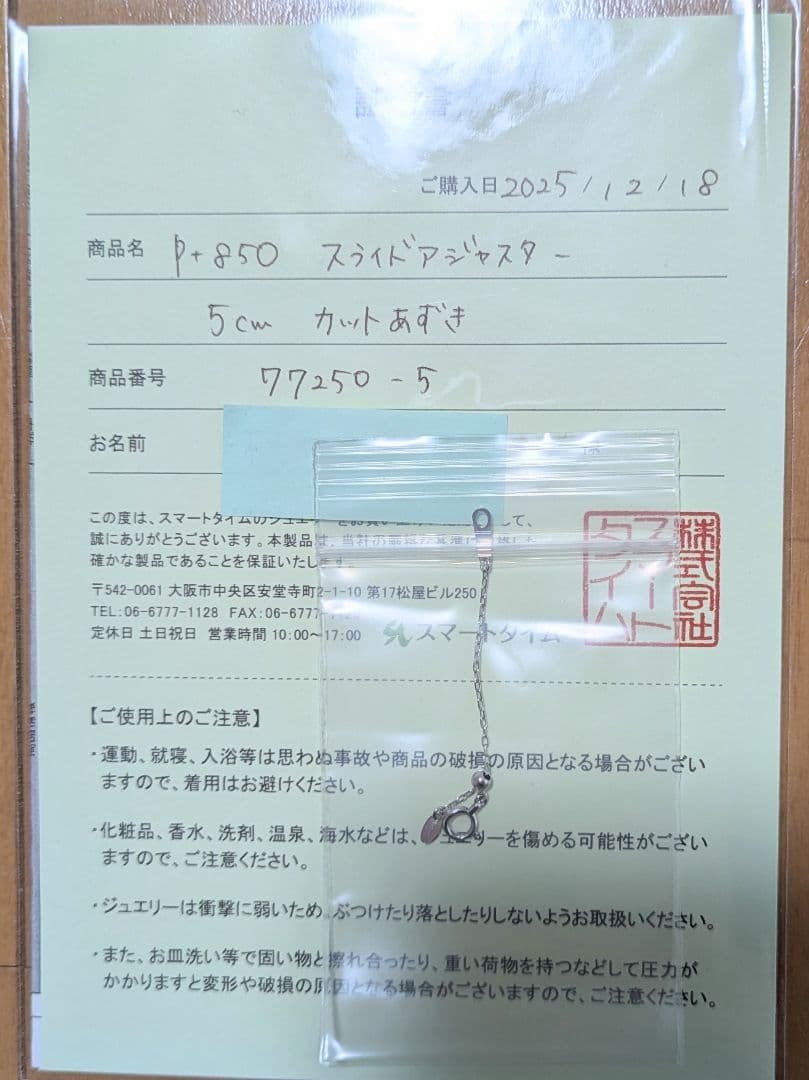 ご購入日 2025/12/18
商品名 Pt850 スライドアジャスター
5cm カットあずき
商品番号 77250-5
お名前
この度は、スマートタイムのジュエリーをお買い
誠にありがとうございます。本製品は、当社の
確かな製品であることを保証いたします。
〒542-0061 大阪市中央区安堂寺町2-1-10 第17松屋ビル250
TEL:06-6777-1128 FAX:06-6777-
定休日 土日祝日 営業時間 10:00～17:00
スマートタイム
株式会社
スマートタイム
【ご使用上のご注意】
・運動、就寝、入浴等は思わぬ事故や商品の破損の原因となる場合がござい
ますので、着用はお避けください。
・化粧品、香水、洗剤、温泉、海水などは、ジュエリーを傷める可能性がござい
ますので、ご注意ください。
・ジュエリーは衝撃に弱いため、ぶつけたり落としたりしないようお取扱いください。
・また、お皿洗い等で固い物と擦れ合ったり、重い荷物を持つなどして圧力が
かかりますと変形や破損の原因となる場合がございますので、ご注意ください。